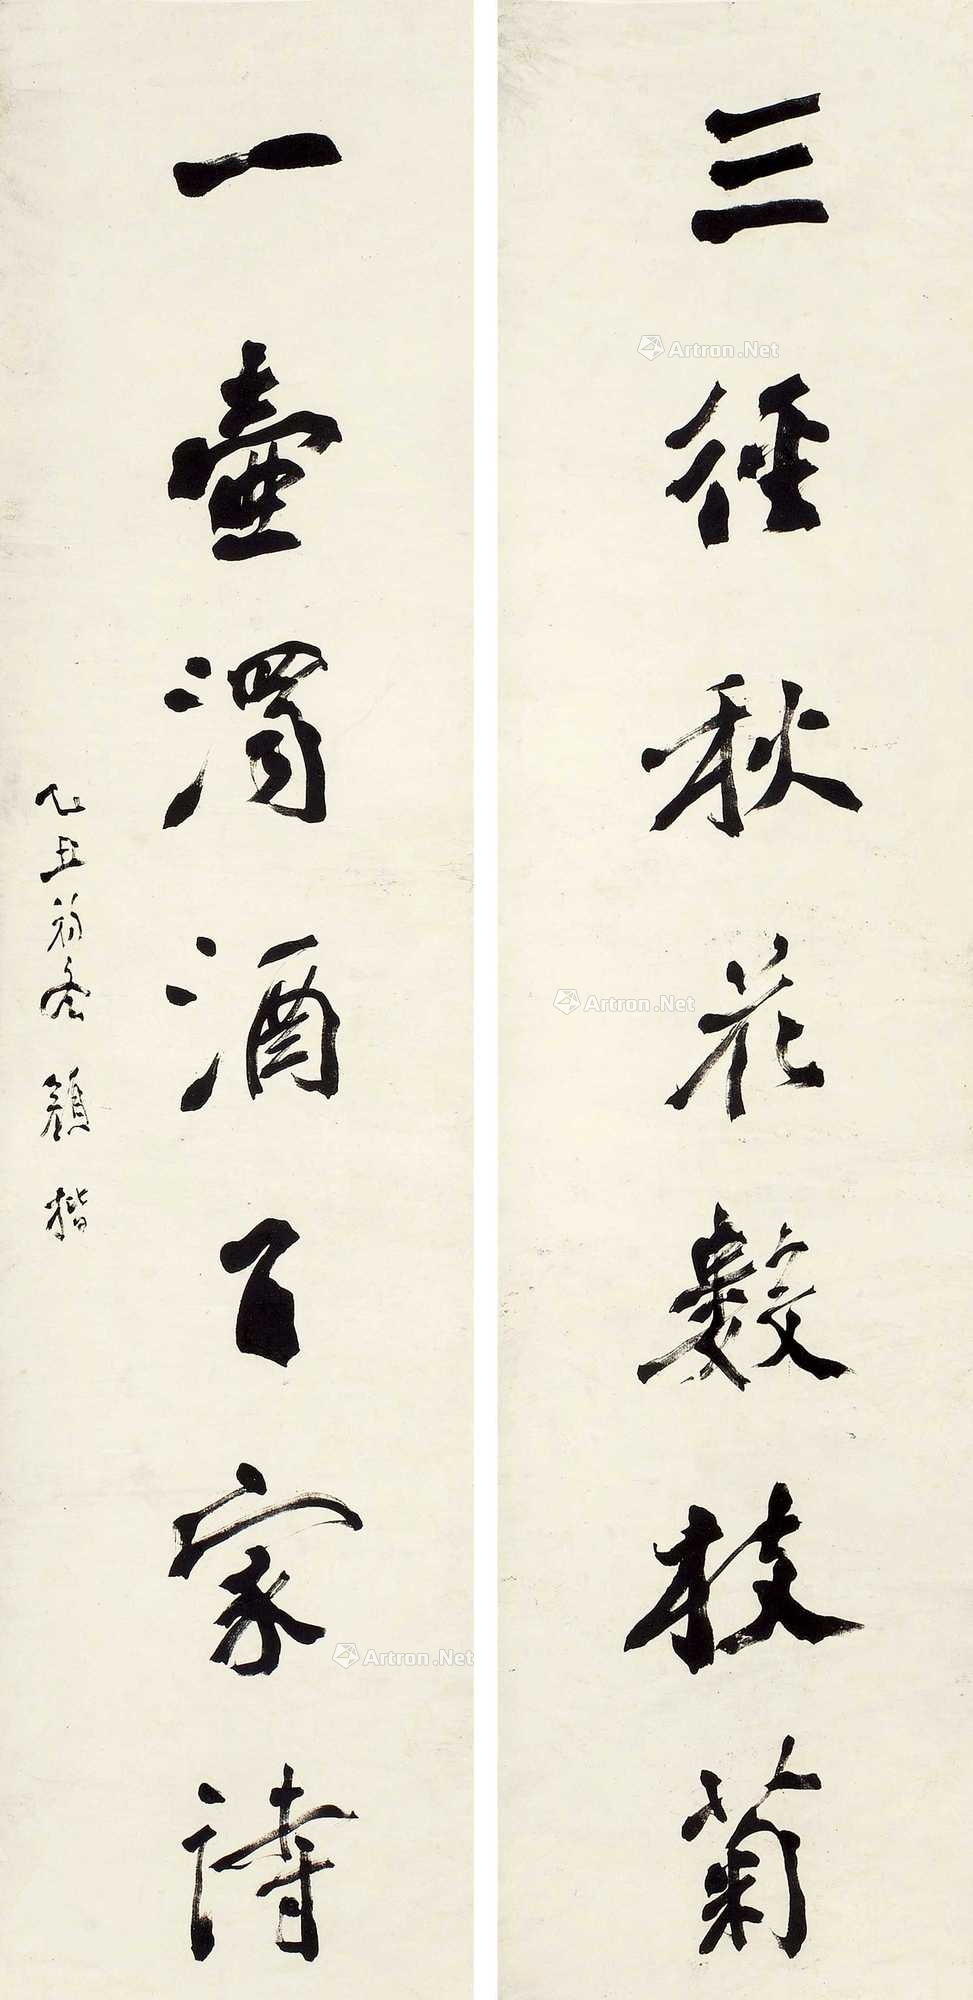 三徑秋花數枝菊
一壺濁酒百家詩
乙丑初冬 顏楷
Artron.Net
Artron.Net
Artron.Net